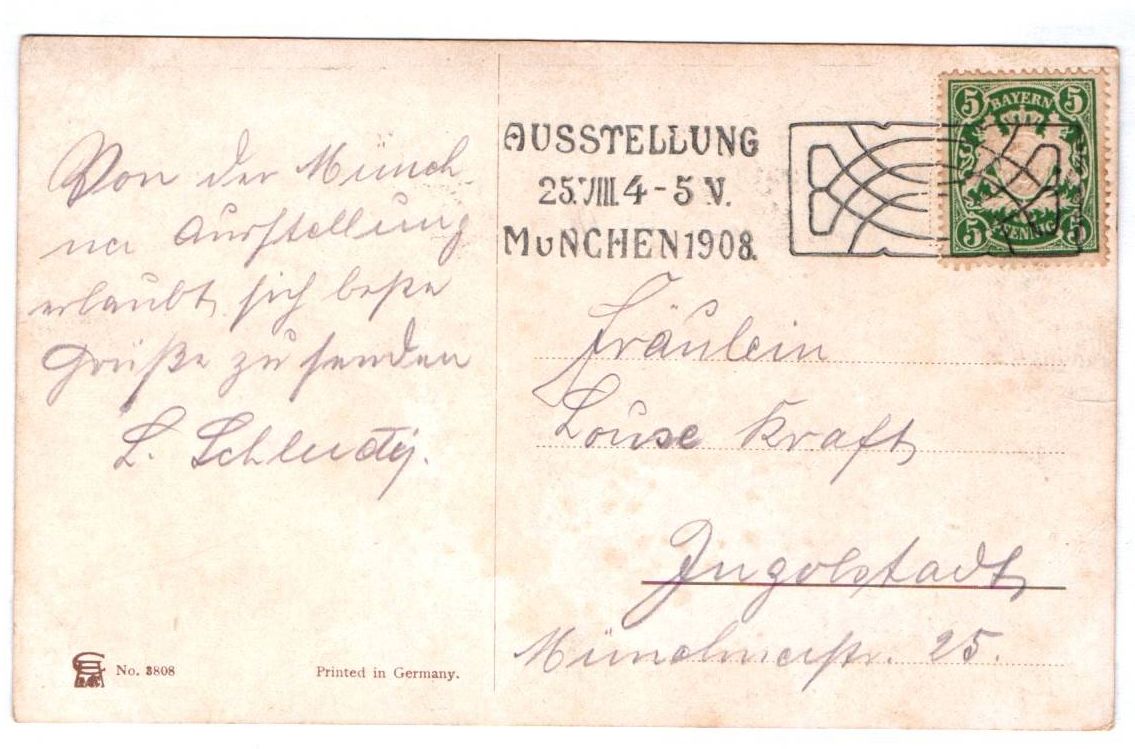 Von der Münch
ner Ausstellung
erlaubt sich beste
Grüße zu senden
L.
No. 3808
Printed in Germany.
AUSSTELLUNG
25.VIII.4-5 V.
MUNCHEN1908.
5 BAYERN 5
5 PFENNIG 5
Fräulein
Louise Kraft
Ingolstadt
Münchnerstr. 25.